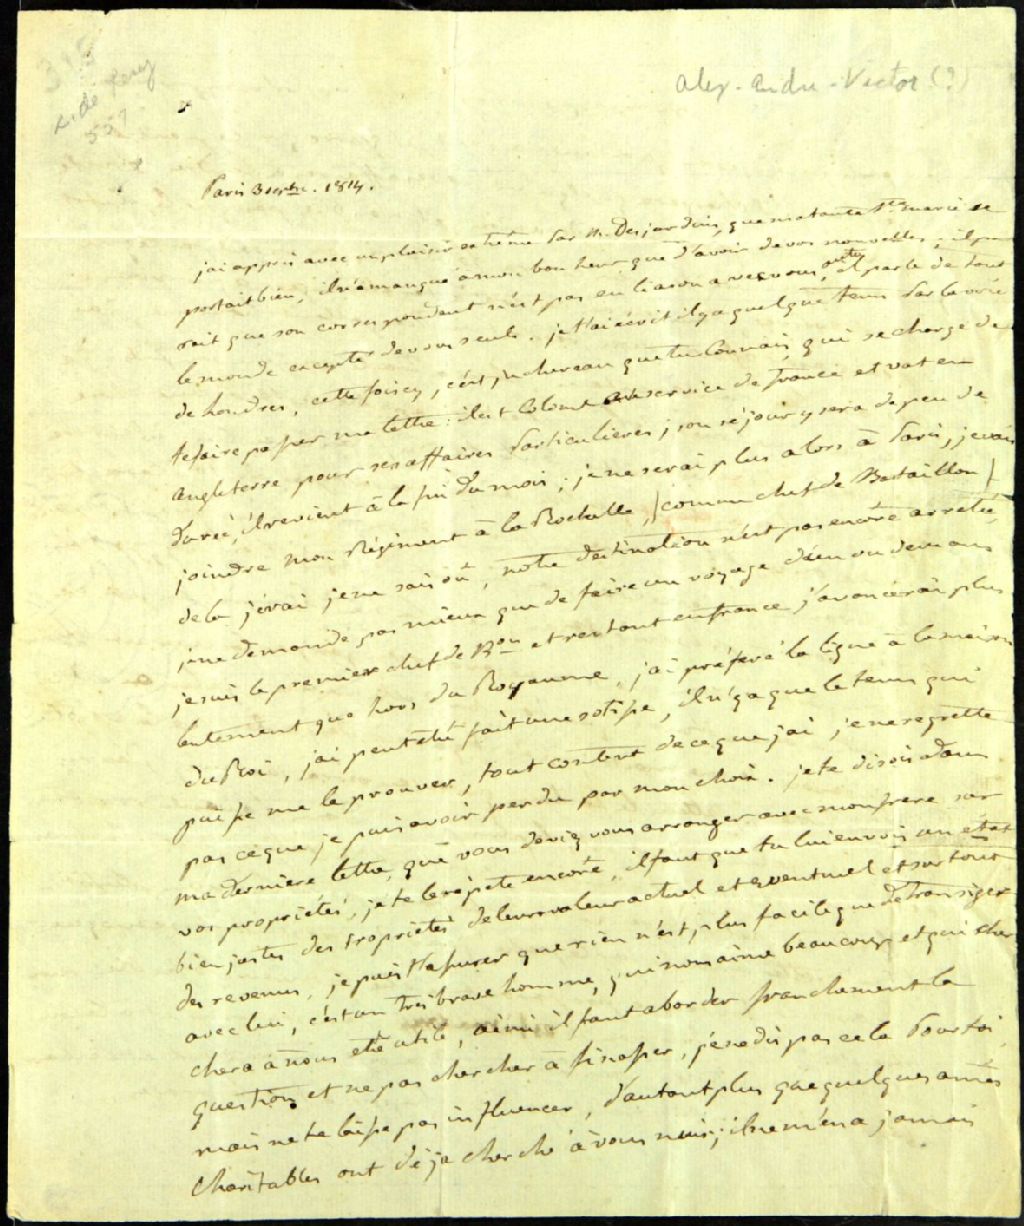 318
L. de fery
551
Alex-andre-Victor (?)
Paris 3 septbre. 1814.
j'ai appris avec un plaisir extrême par Mr. Desjardins, que ma tante Ste. marie se
portait bien, il n'a manqué à mon bonheur que d'avoir de vos nouvelles, il pa-
rait que son correspondant n'est pas en liaison avec vous autres, il parle de tout
le monde excepté de vous seuls. je t'ai écrit il y a quelque tems par la voie
de Londres, cette fois ci, c'est juchereau que tu connais, qui se charge de
te faire passer ma lettre: il est Colonel au service de france et vat en
angleterre pour ses affaires particulieres; son séjour y sera de peu de
durée, il revient à la fin du mois; je ne serai plus alors à Paris, je vais
joindre mon Régiment à la Rochelle, /comme chef de Bataillon/
de la j'irai je ne sais où, notre destination n'est pas encore arretée,
je ne demande pas mieux que de faire un voyage d'un ou deux ans
je suis le premier chef de Bon et restant en france j'avancerai plus
lentement que hors du Royaume, j'ai préféré la ligne à la maison
du Roi, j'ai peut etre fait une sotise, il n'y a que le tems qui
puisse me le prouver, tout content de ce que j'ai, je ne regrette
pas ce que je puis avoir perdu par mon choix. je te disois dans
ma derniere lettre, que vous deviez vous arranger avec mon frere sur
vos propriétés, je te le répete encore, il faut que tu lui envois un etat
bien juste des propriétés de leur valeur actuel et eventuel et sur tout
des revenus, je puis t'assurer que rien n'est plus facile que de transiger
avec lui, c'est un très brave homme, qui nous aime beaucoup et qui cher-
chera à nous etre utile, ainsi il faut aborder franchement la
question et ne pas chercher à finasser, je ne dis pas cela pour toi,
mais ne te laisse pas influencer, d'autant plus que quelques ames
charitables ont déja cherché à vous nuir; il ne m'en a jamais